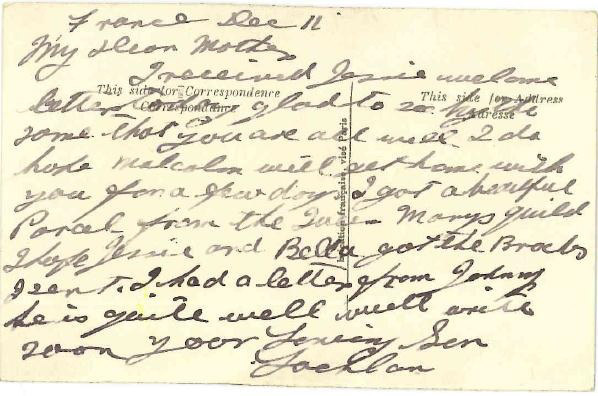 France Dec 11
My dear Mother
I received Jessie welcome
This side for Correspondence
Correspondance
This side for Address
Adresse
letter glad to
some that you are all well I do
hope Malcolm will get home with
you for a few days I got a beutiful
Parcel from the Queen Marys guild
I hope Jessie and Bella got the Broches
I sent. I had a letter from Johnny
he is quite well well write
soon your loving Son
Lochlan
française, visé Paris